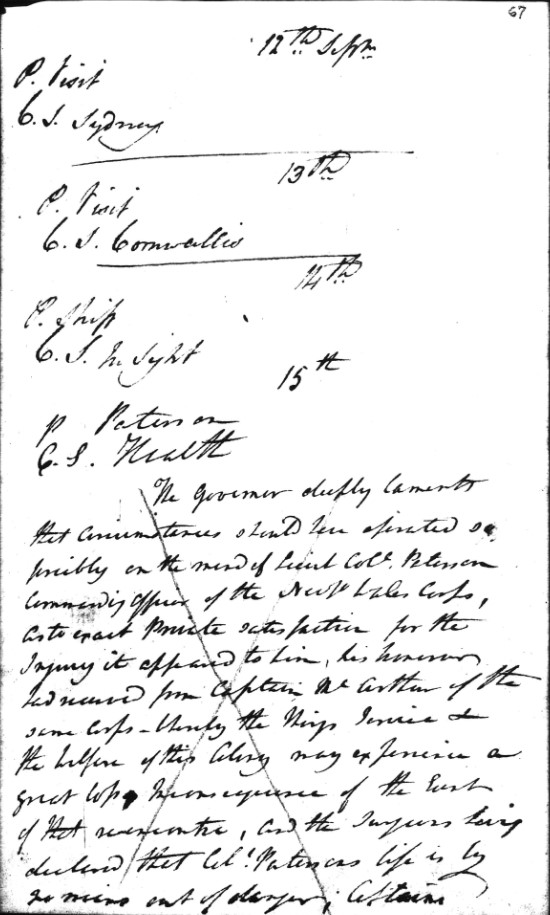 67
12th Septr
P. Visit
C. S. Sydney
13th
P. Visit
C. S. Cornwallis
14th
P. Ship
C. S. In Sight
15th
P Paterson
C. S. Health
The Governor deeply laments
that circumstances should have operated so
forcibly on the mind of Lieut Coll. Paterson
Commandg Officer of the New So Wales Corps,
as to exact Private satisfaction for the
Injury it appeared to him, his honor
had received from Captain Mc Arthur of the
same Corps - thereby the Kings Service &
the Welfare of this Colony may experience a
great loss Inconsequence of the Event
of that rencontre, and the Surgeons having
declared that Coll. Patersons life is by
no means out of danger; Captains